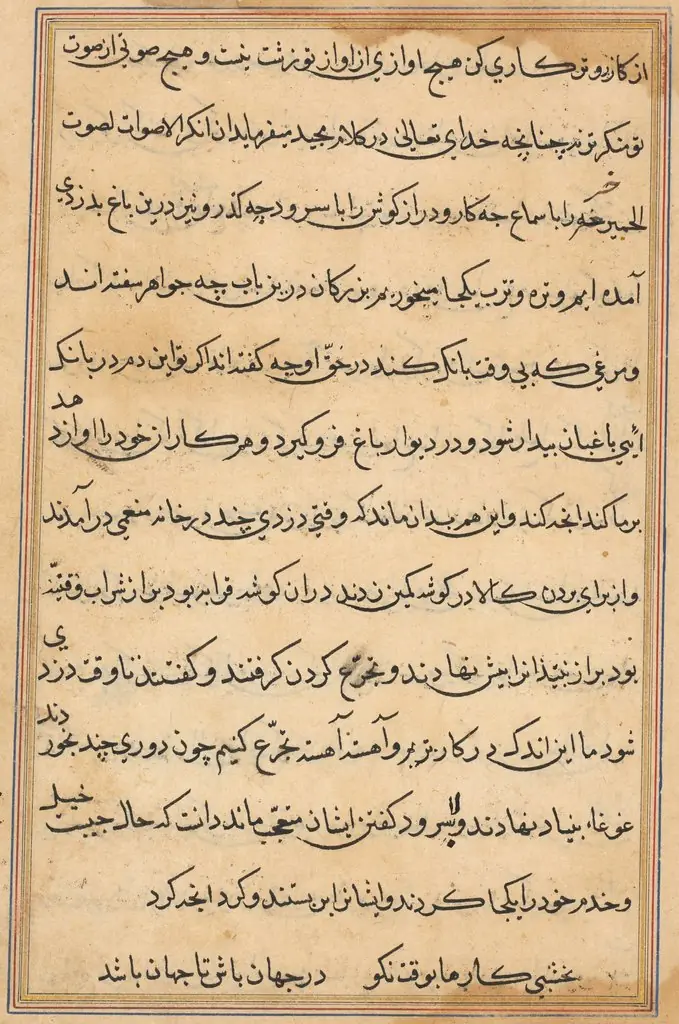 از کار تو و تن کاری کن هیچ اوازی از اواز تو زشت نیست و هیچ صوتی از صوت
تو منکر تر نه چنانچه خدای تعالی در کلام مجید میفرماید ان انکر الاصوات لصوت
الحمیر خر را با سماع چه کار و دراز کوش را با سرود چه کذر و نیز درین باغ بدزدی
آمده ایم و تره و ترب یکجا میخوریم بزرکان درین باب چه جواهر سفته اند
و مرغی که بی وقت بانک کند در حقّ او چه کفته اند اکر تو این دم در بانک
ایٔی باغبان بیدار شود و در دیوار باغ فرو کیرد و هر کار از خود را اواز دهد
بر ما کند انچه کند و این هم بدان ماند که وقتی دزدی چند در خانه منعمی در آمدند
و از برای بردن کالا در کوشه کمین زدند در ان کوشه قرابه بود پر از شراب و قنینه
بود پر از نبیذ انرا پیش نهادند و تجرّع کردن کرفتند و کفتند تا وقت دزدی
شود ما این اندک در کار بریم و آهسته آهسته تجرّع کنیم چون دوری چند بخوردند
غوغاء بنیاد نهادند و سرود کفتن ایشان متعجّب ماند دانست که حال چیست خیل
و خدم خود را یکجا کردند و ایشانرا بربستند و کرد انچه کرد
نخشبی کارها بوقت نکو در جهان باش تا جهان باشد